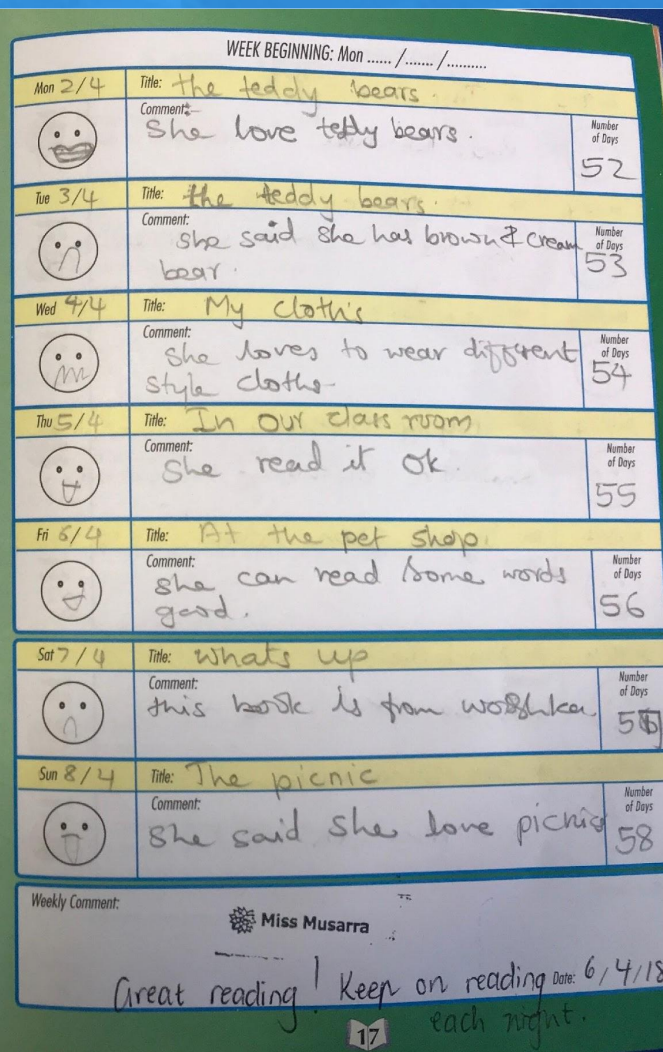 WEEK BEGINNING: Mon ....../......./..........
Mon 2/4 Title: the teddy bears.
Comment:
She love teddy bears.
Number
of Days
52
Tue 3/4 Title: the teddy bears.
Comment:
she said she has brown & cream
bear.
Number
of Days
53
Wed 4/4 Title: My cloth's
Comment:
She loves to wear different
style cloths
Number
of Days
54
Thu 5/4 Title: In our class room
Comment:
She read it ok.
Number
of Days
55
Fri 6/4 Title: At the pet shop.
Comment:
she can read some words
good.
Number
of Days
56
Sat 7/4 Title: whats up
Comment:
this book is from
Number
of Days
Sun 8/4 Title: The picnic
Comment:
She said She love picnics
Number
of Days
58
Weekly Comment:
Miss Musarra
Great reading! Keep on reading Date: 6/4/18
each night.
17